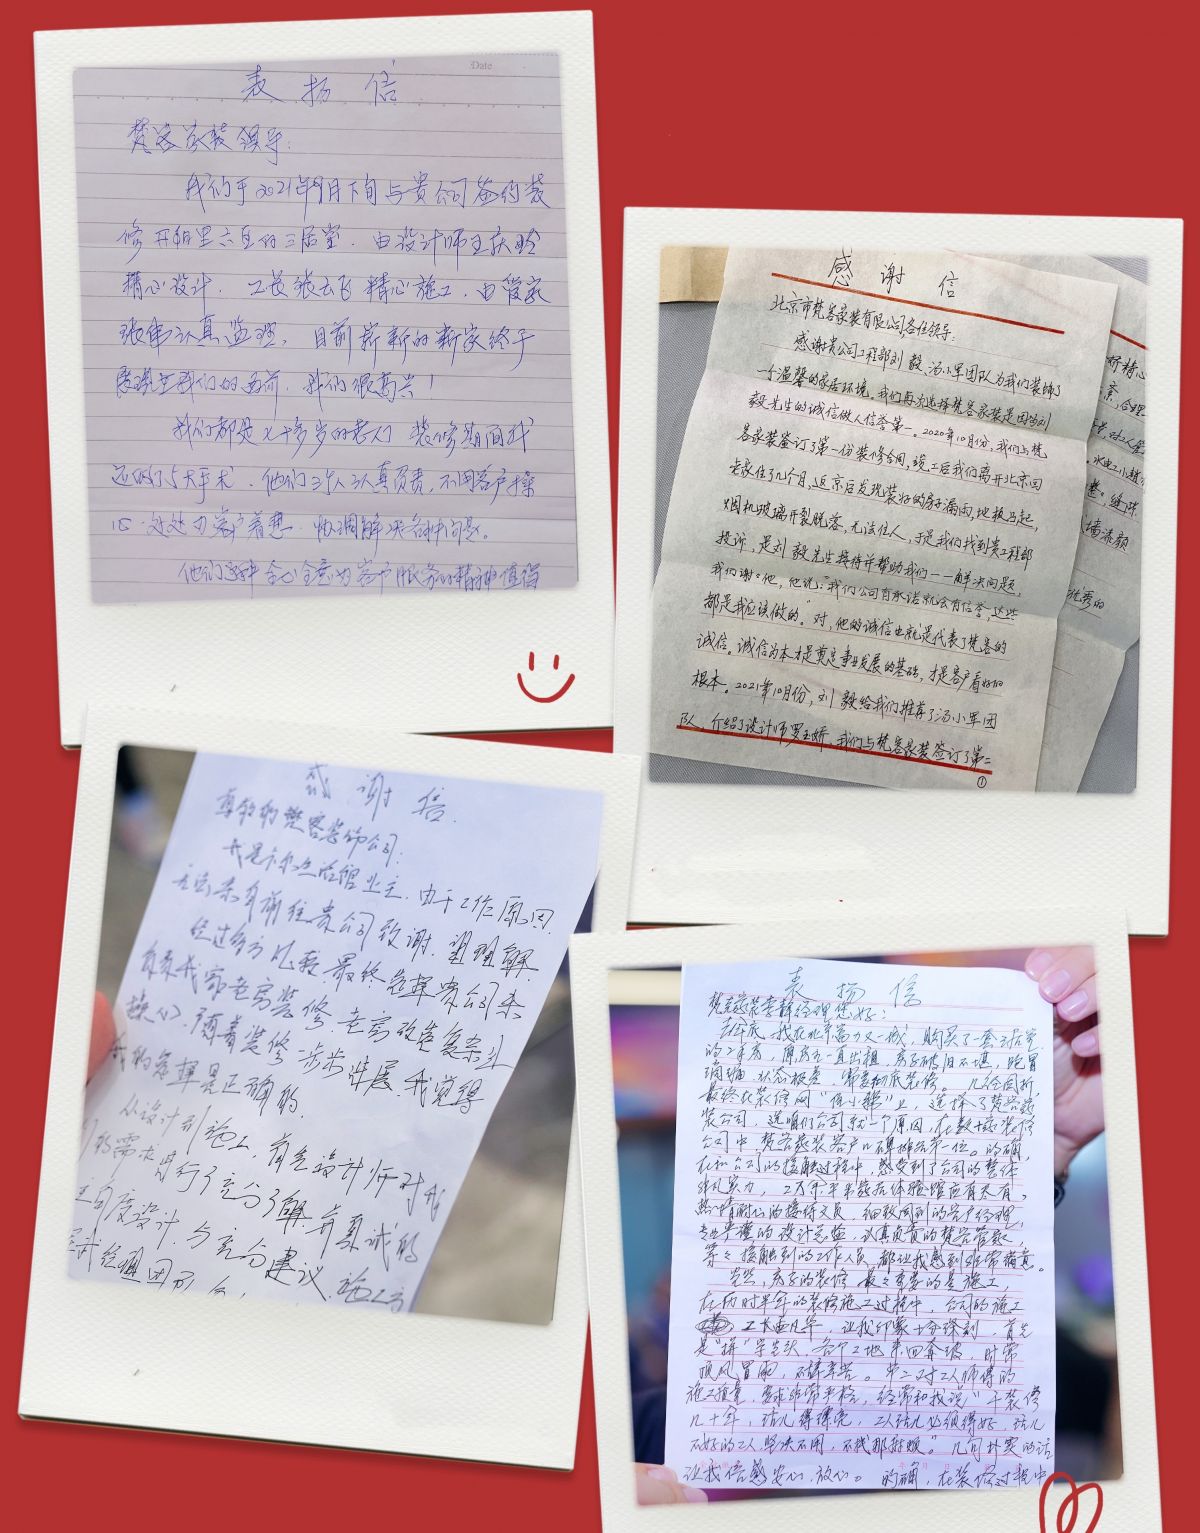 Date
表扬信
梵客家装领导:
我们于2021年9月下旬与贵公司签约装
修 的三居室.由设计师王
精心设计.工长张云飞精心施工.由管家
认真监理,目前崭新的新家终于
我们的面前.我们很高兴!
我们都是七十多岁的老人 装修期间我
还做了5大手术.他们三个人认真负责,不用客户操
心 处处为客户着想.协调解决各种问题。
他们这种全心全意为客户服务的精神值得
感谢信
北京市梵客家装有限公司各位领导:
感谢贵公司工程部刘毅、汤小军团队为我们装饰了
一个温馨的家居环境。我们再次选择梵客家装是因为刘
毅先生的诚信做人信誉第一。2020年10月份,我们与梵
客家装签订了第一份装修合同,竣工后我们离开北京回
老家住了几个月,返京后发现装好的房子漏雨,地板鸟起,
烟机玻璃开裂脱落,无法住人,于是我们找到贵工程部
投诉,是刘毅先生接待并帮助我们一一解决问题,
我们谢谢他,他说:“我们公司有承诺就会有信誉,这些
都是我应该做的。”对,他的诚信也就是代表了梵客的
诚信。诚信为本才是奠定事业发展的基础,才是客户看好的
根本。2021年10月份,刘毅给我们推荐了汤小军团
队,介绍了设计师罗玉娇,我们与梵客家装签订了第二
①
感谢信
尊敬的梵客装饰公司:
我是 生活馆业主.由于工作原因.
无法亲自前往贵公司致谢.望理解.
经过多方比较.最终选择贵公司来
负责我家老房装修.老房改造复杂且
操心.随着装修一步步进展.我觉得
我的选择是正确的.
从设计到施工.首先设计师对我
们的需求进行了充分了解.并真诚的
度设计.与充分建议.施工方
经理团队
表扬信
梵客家装李静经理您好:
去年底,我在北京 购买了一套三居室
的二手房,原房主一直出租,房子破旧不堪,跑冒
滴漏 状态极差,需要彻底装修。几经周折,
最终在装修网 上,选择了梵客家
装公司,选咱们公司就一个原因,在数十家装修
公司中,梵客家装客户口碑排名第一位。的确,
在和公司的接触过程中,感受到了公司的整体
实力,2万余平米家居体验馆应有尽有,
热情耐心的接待文员,细致周到的客户经理,
专业严谨的设计总监,认真负责的梵客管家,
等等接触到的工作人员,都让我感到非常满意。
当然,房子的装修最最重要的是施工,
在历时半年的装修施工过程中,公司的施工
工长 ,让我印象十分深刻,首先
是“拼”字当头,各个工地来回奔波,时常
顶风冒雨,不辞辛苦。第二对工人师傅的
施工质量,要求非常严格,经常和我说“干装修
几十年,活儿得漂亮,工人活儿必须得好,活儿
不好的工人,坚决不用,不找那麻烦。”几句朴实的话
让我倍感安心、放心。的确,在装修过程中